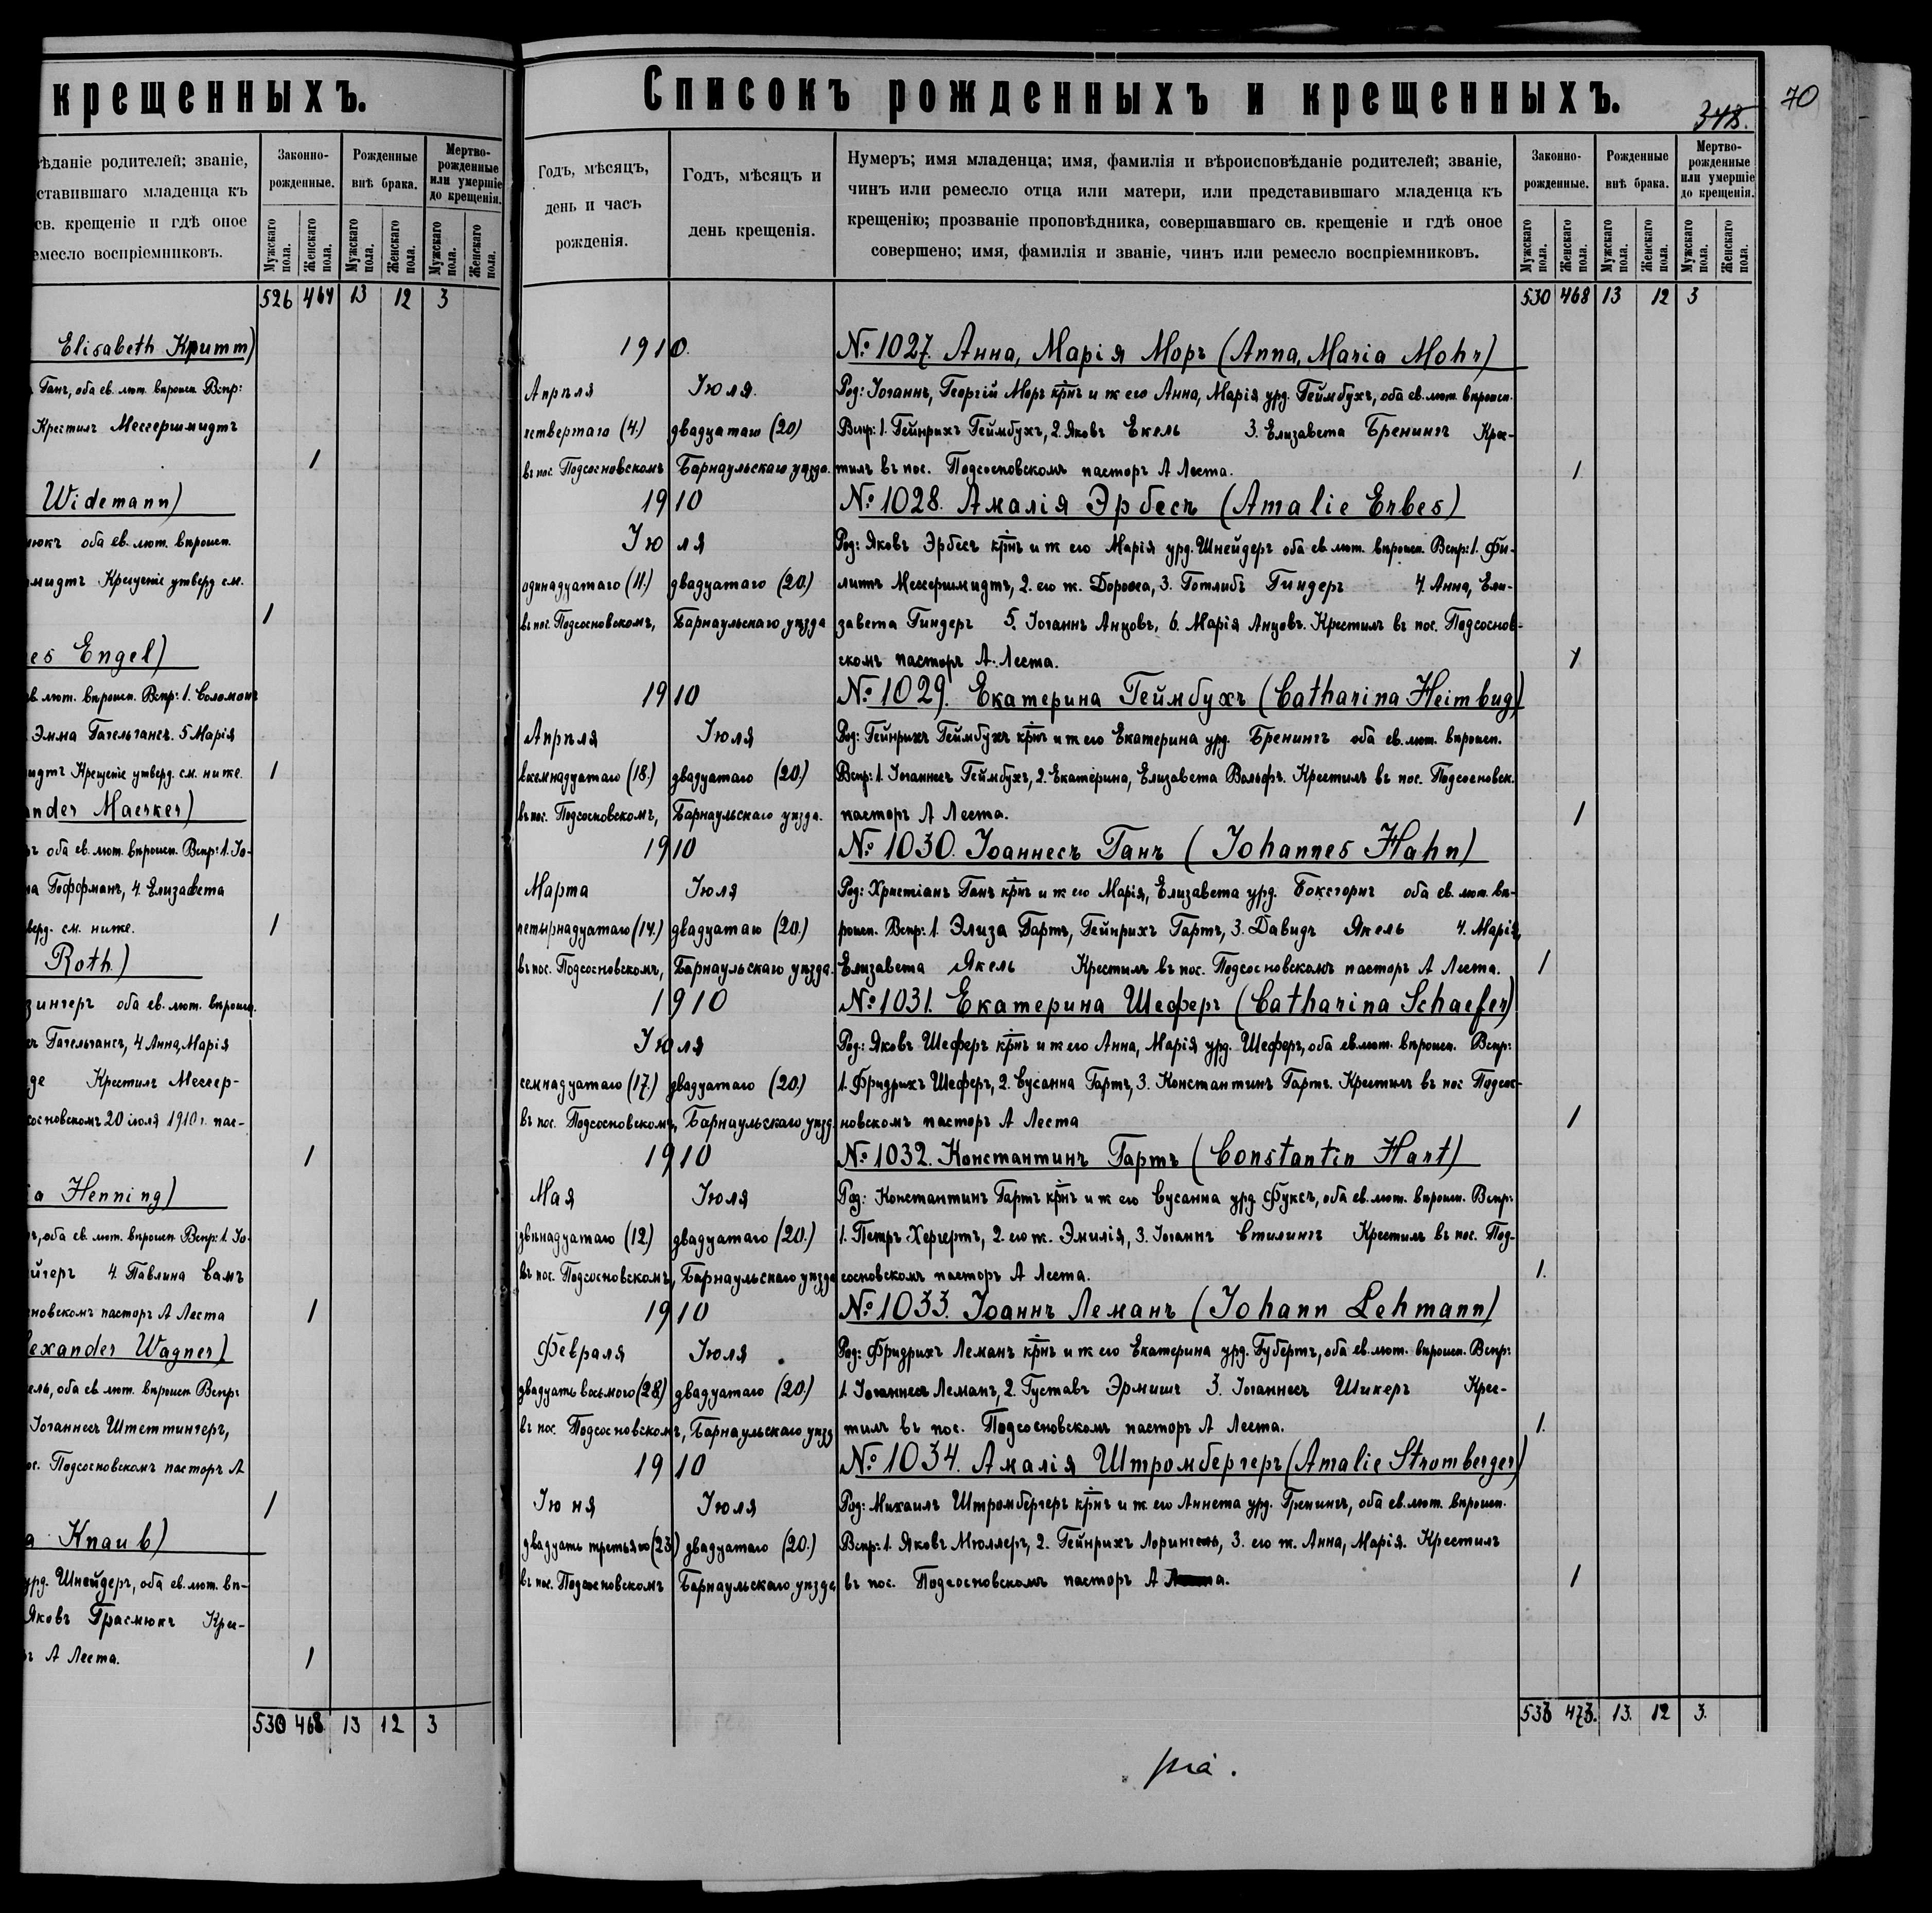 крещенныхъ.
вѣданіе родителей; званіе,
ставившаго младенца къ
св. крещеніе и гдѣ оное
емесло воспріемниковъ.
Законно-
рожденные.
Рожденные
внѣ брака.
Мертво-
рожденные
или умершіе
до крещенія.
Мужскаго пола.
Женскаго пола.
Мужскаго пола.
Женскаго пола.
Мужскаго пола.
Женскаго пола.
526 464 13 12 3
Elisabeth Krumm)
Ганъ, оба ев. лют. вѣроисп. Вспр:
Крестилъ Мессершмидтъ
1
Widemann)
мюкъ оба ев. лют. вѣроисп.
мидтъ Крещеніе утверд см.
1
es Engel)
ев лют. вѣроисп. Вспр: 1. Соломонъ
Эмма Гагельгансъ. 5 Марія
мидтъ Крещеніе утверд. см. ниже. 1
ander Maerker)
ръ оба ев. лют. вѣроисп. Вспр: 1. Іо-
на Гофманъ, 4 Елизавета
верд. см. ниже. 1
Roth)
зингеръ оба ев. лют. вѣроисп.
Гагельгансъ, 4 Анна, Марія
де Крестилъ Мессер-
сосновскомъ 20 іюля 1910 г. пас-
1
a Henning)
ъ, оба ев. лют. вѣроисп Вспр: 1. Іо-
йгеръ 4 Павлина Самъ
новскомъ пасторъ А Леста 1
lexander Wagner)
ель, оба ев лют. вѣроисп Вспр:
Іоганнесъ Штеттингеръ,
ос. Подсосновскомъ пасторъ А
1
a Knaub)
урд. Шнейдеръ, оба ев. лют. вѣ-
Яковъ Грасмюкъ Крес-
ъ А Леста. 1
530 468 13 12 3
Списокъ рожденныхъ и крещенныхъ.
348.
70
Годъ, мѣсяцъ,
день и часъ
рожденія.
Годъ, мѣсяцъ и
день крещенія.
Нумеръ; имя младенца; имя, фамилія и вѣроисповѣданіе родителей; званіе,
чинъ или ремесло отца или матери, или представившаго младенца къ
крещенію; прозваніе проповѣдника, совершавшаго св. крещеніе и гдѣ оное
совершено; имя, фамилія и званіе, чинъ или ремесло воспріемниковъ.
Законно-
рожденные.
Рожденные
внѣ брака.
Мертво-
рожденные
или умершіе
до крещенія.
Мужскаго пола.
Женскаго пола.
Мужскаго пола.
Женскаго пола.
Мужскаго пола.
Женскаго пола.
530 468 13 12 3
1910. № 1027. Анна, Марія Моръ (Anna, Maria Mohr)
Апрѣля Іюля. Род: Іоганнъ, Георгій Моръ крнъ и ж его Анна, Марія урд. Геймбухъ, оба ев. лют. вѣроисп.
четвертаго (4.) двадцатаго (20) Вспр: 1. Гейнрихъ Геймбухъ, 2. Яковъ Екель 3. Елизавета Бренингъ Крес-
въ пос. Подсосновскомъ Барнаульскаго уѣзда. тилъ въ пос. Подсосновскомъ пасторъ А Леста. 1
1910 № 1028. Амалія Эрбесъ (Amalie Erbes)
Іюля Род: Яковъ Эрбесъ крнъ и ж его Марія урд. Шнейдеръ оба ев лют. вѣроисп. Вспр: 1. Фи-
одинадцатаго (11.) двадцатаго (20.) липпъ Мессершмидтъ, 2. его ж. Доротея, 3. Готлибъ Гиндеръ 4. Анна, Ели-
въ пос. Подсосновскомъ, Барнаульскаго уѣзда завета Гиндеръ 5. Іоганнъ Анцовъ, 6. Марія Анцовъ. Крестилъ въ пос. Подсоснов-
скомъ пасторъ А. Леста. 1
1910 № 1029. Екатерина Геймбухъ (Catharina Heimbug)
Апрѣля Іюля Род: Гейнрихъ Геймбухъ крнъ и ж его Екатерина урд. Бренингъ оба ев. лют. вѣроисп.
восемнадцатаго (18.) двадцатаго (20.) Вспр: 1. Іоганнесъ Геймбухъ, 2. Екатерина, Елизавета Вольфъ. Крестилъ въ пос. Подсосновск.
въ пос. Подсосновскомъ, Барнаульскаго уѣзда. пасторъ А Леста. 1
1910 № 1030. Іоаннесъ Ганъ (Johannes Hahn)
Марта Іюля Род: Христіанъ Ганъ крнъ и ж его Марія, Елизавета урд. Боксгорнъ оба ев. лют. вѣ-
четырнадцатаго (14.) двадцатаго (20.) роисп. Вспр: 1. Элиза Гартъ, Гейнрихъ Гартъ, 3. Давидъ Якель 4. Марія,
въ пос. Подсосновскомъ, Барнаульскаго уѣзда. Елизавета Якель Крестилъ въ пос. Подсосновскомъ пасторъ А Леста. 1
1910 № 1031. Екатерина Шеферъ (Catharina Schaefer)
Іюля Род: Яковъ Шеферъ крнъ и ж его Анна, Марія урд. Шеферъ, оба ев лют. вѣроисп. Вспр:
семнадцатаго (17.) двадцатаго (20.) 1. Фридрихъ Шеферъ, 2. Сусанна Гартъ, 3. Константинъ Гартъ. Крестилъ въ пос Подсос-
въ пос. Подсосновскомъ, Барнаульскаго уѣзд. новскомъ пасторъ А Леста 1
1910 № 1032. Константинъ Гартъ (Constantin Hart)
Мая Іюля Род: Константинъ Гартъ крнъ и ж его Сусанна урд Фуксъ, оба ев. лют. вѣроисп. Вспр:
двѣнадцатаго (12.) двадцатаго (20.) 1. Петръ Хергертъ, 2. его ж. Эмилія, 3. Іоганнъ Стилингъ Крестилъ въ пос. Под-
въ пос. Подсосновскомъ, Барнаульскаго уѣзда сосновскомъ пасторъ А Леста. 1.
1910 № 1033. Іоаннъ Леманъ (Johann Lehmann)
Февраля Іюля Род: Фридрихъ Леманъ крнъ и ж его Екатерина урд. Губертъ, оба ев. лют. вѣроисп. Вспр:
двадцать восьмого (28) двадцатаго (20.) 1. Іоганнесъ Леманъ, 2. Густавъ Эрмишъ 3. Іоганнесъ Шикеръ Крес-
въ пос. Подсосновскомъ, Барнаульскаго уѣзд тилъ въ пос. Подсосновскомъ пасторъ А Леста. 1.
1910 № 1034. Амалія Штромбергеръ (Amalie Stromberger)
Іюня Іюля Род: Михаилъ Штромбергеръ крнъ и ж его Аннета урд. Гренингъ, оба ев. лют. вѣроисп.
двадцать третьяго (23) двадцатаго (20.) Вспр: 1. Яковъ Мюллеръ, 2. Гейнрихъ Лорингель, 3. его ж. Анна, Марія. Крестилъ
въ пос. Подсосновскомъ Барнаульскаго уѣзда въ пос. Подсосновскомъ пасторъ А Леста. 1
533 473. 13. 12 3.